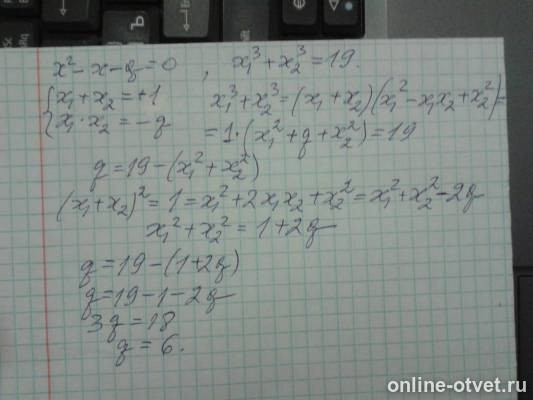 x² - x - q = 0 , x₁³ + x₂³ = 19.
{ x₁ + x₂ = +1
x₁ · x₂ = - q
x₁³ + x₂³ = (x₁ + x₂)(x₁² - x₁x₂ + x₂²) =
= 1 · (x₁² + q + x₂²) = 19
q = 19 - (x₁² + x₂²)
(x₁ + x₂)² = 1 = x₁² + 2x₁x₂ + x₂² = x₁² + x₂² - 2q
x₁² + x₂² = 1 + 2q
q = 19 - (1 + 2q)
q = 19 - 1 - 2q
3q = 18
q = 6.
online-otvet.ru